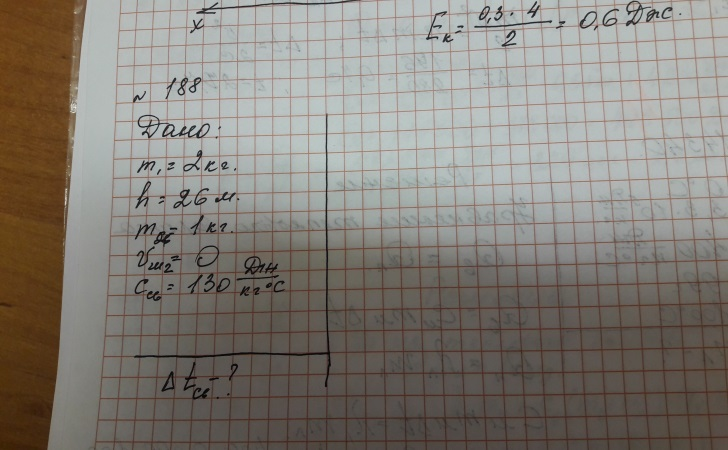 x
Eₖ = 0,3 · 4 / 2 = 0,6 Дж.
№ 188
Дано:
m₁ = 2 кг.
h = 26 м.
m = 1 кг.
Vш₂ = 0
Cсв = 130 Дж/кг°C
Δtсв - ?